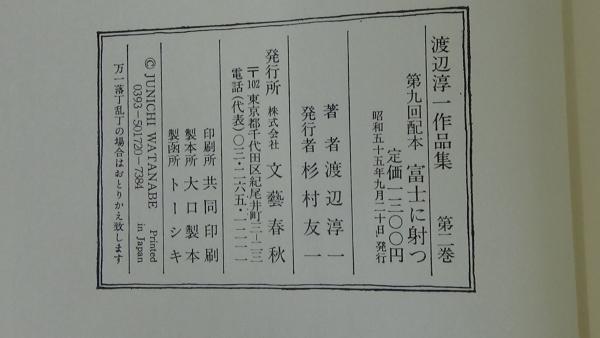 渡辺淳一作品集 第二巻
第九回配本 富士に射つ
定価一二〇〇円
昭和五十五年九月二十日 発行
著者 渡辺淳一
発行者 杉村友一
発行所 株式会社 文藝春秋
〒102 東京都千代田区紀尾井町三―二三
電話(代表)〇三・二六五・一二一一
印刷所 共同印刷
製本所 大口製本
製函所 トーシキ
© JUNICHI WATANABE Printed in Japan
0393-501720-7384
万一落丁乱丁の場合はおとりかえ致します